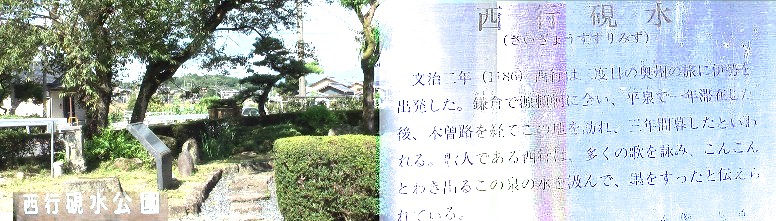 西行硯水公園
西行硯水
(さいぎょうすずりみず)
文治二年(1186)西行は二度目の奥州の旅に伊勢を
出発した。鎌倉で源頼朝に会い、平泉で一年滞在した
後、木曽路を経てこの地を訪れ、三年間暮したといわ
れる。歌人である西行は、多くの歌を詠み、こんこん
とわき出るこの泉の水を汲んで、墨をすったと伝えら
れている。